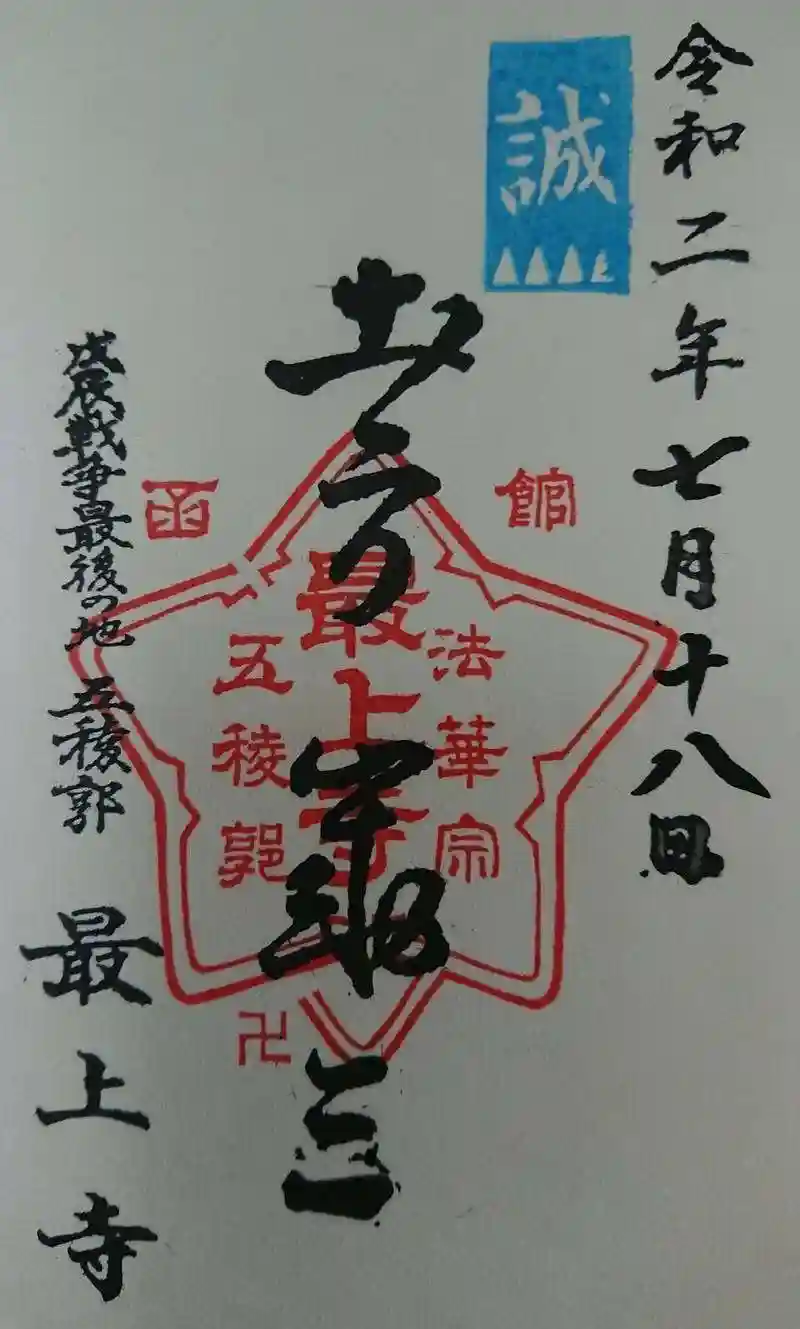 令和二年七月十八日
誠
土方歳三
函館
法華宗
最上寺
五稜郭
卍
戊辰戦争最後の地 五稜郭 最上寺